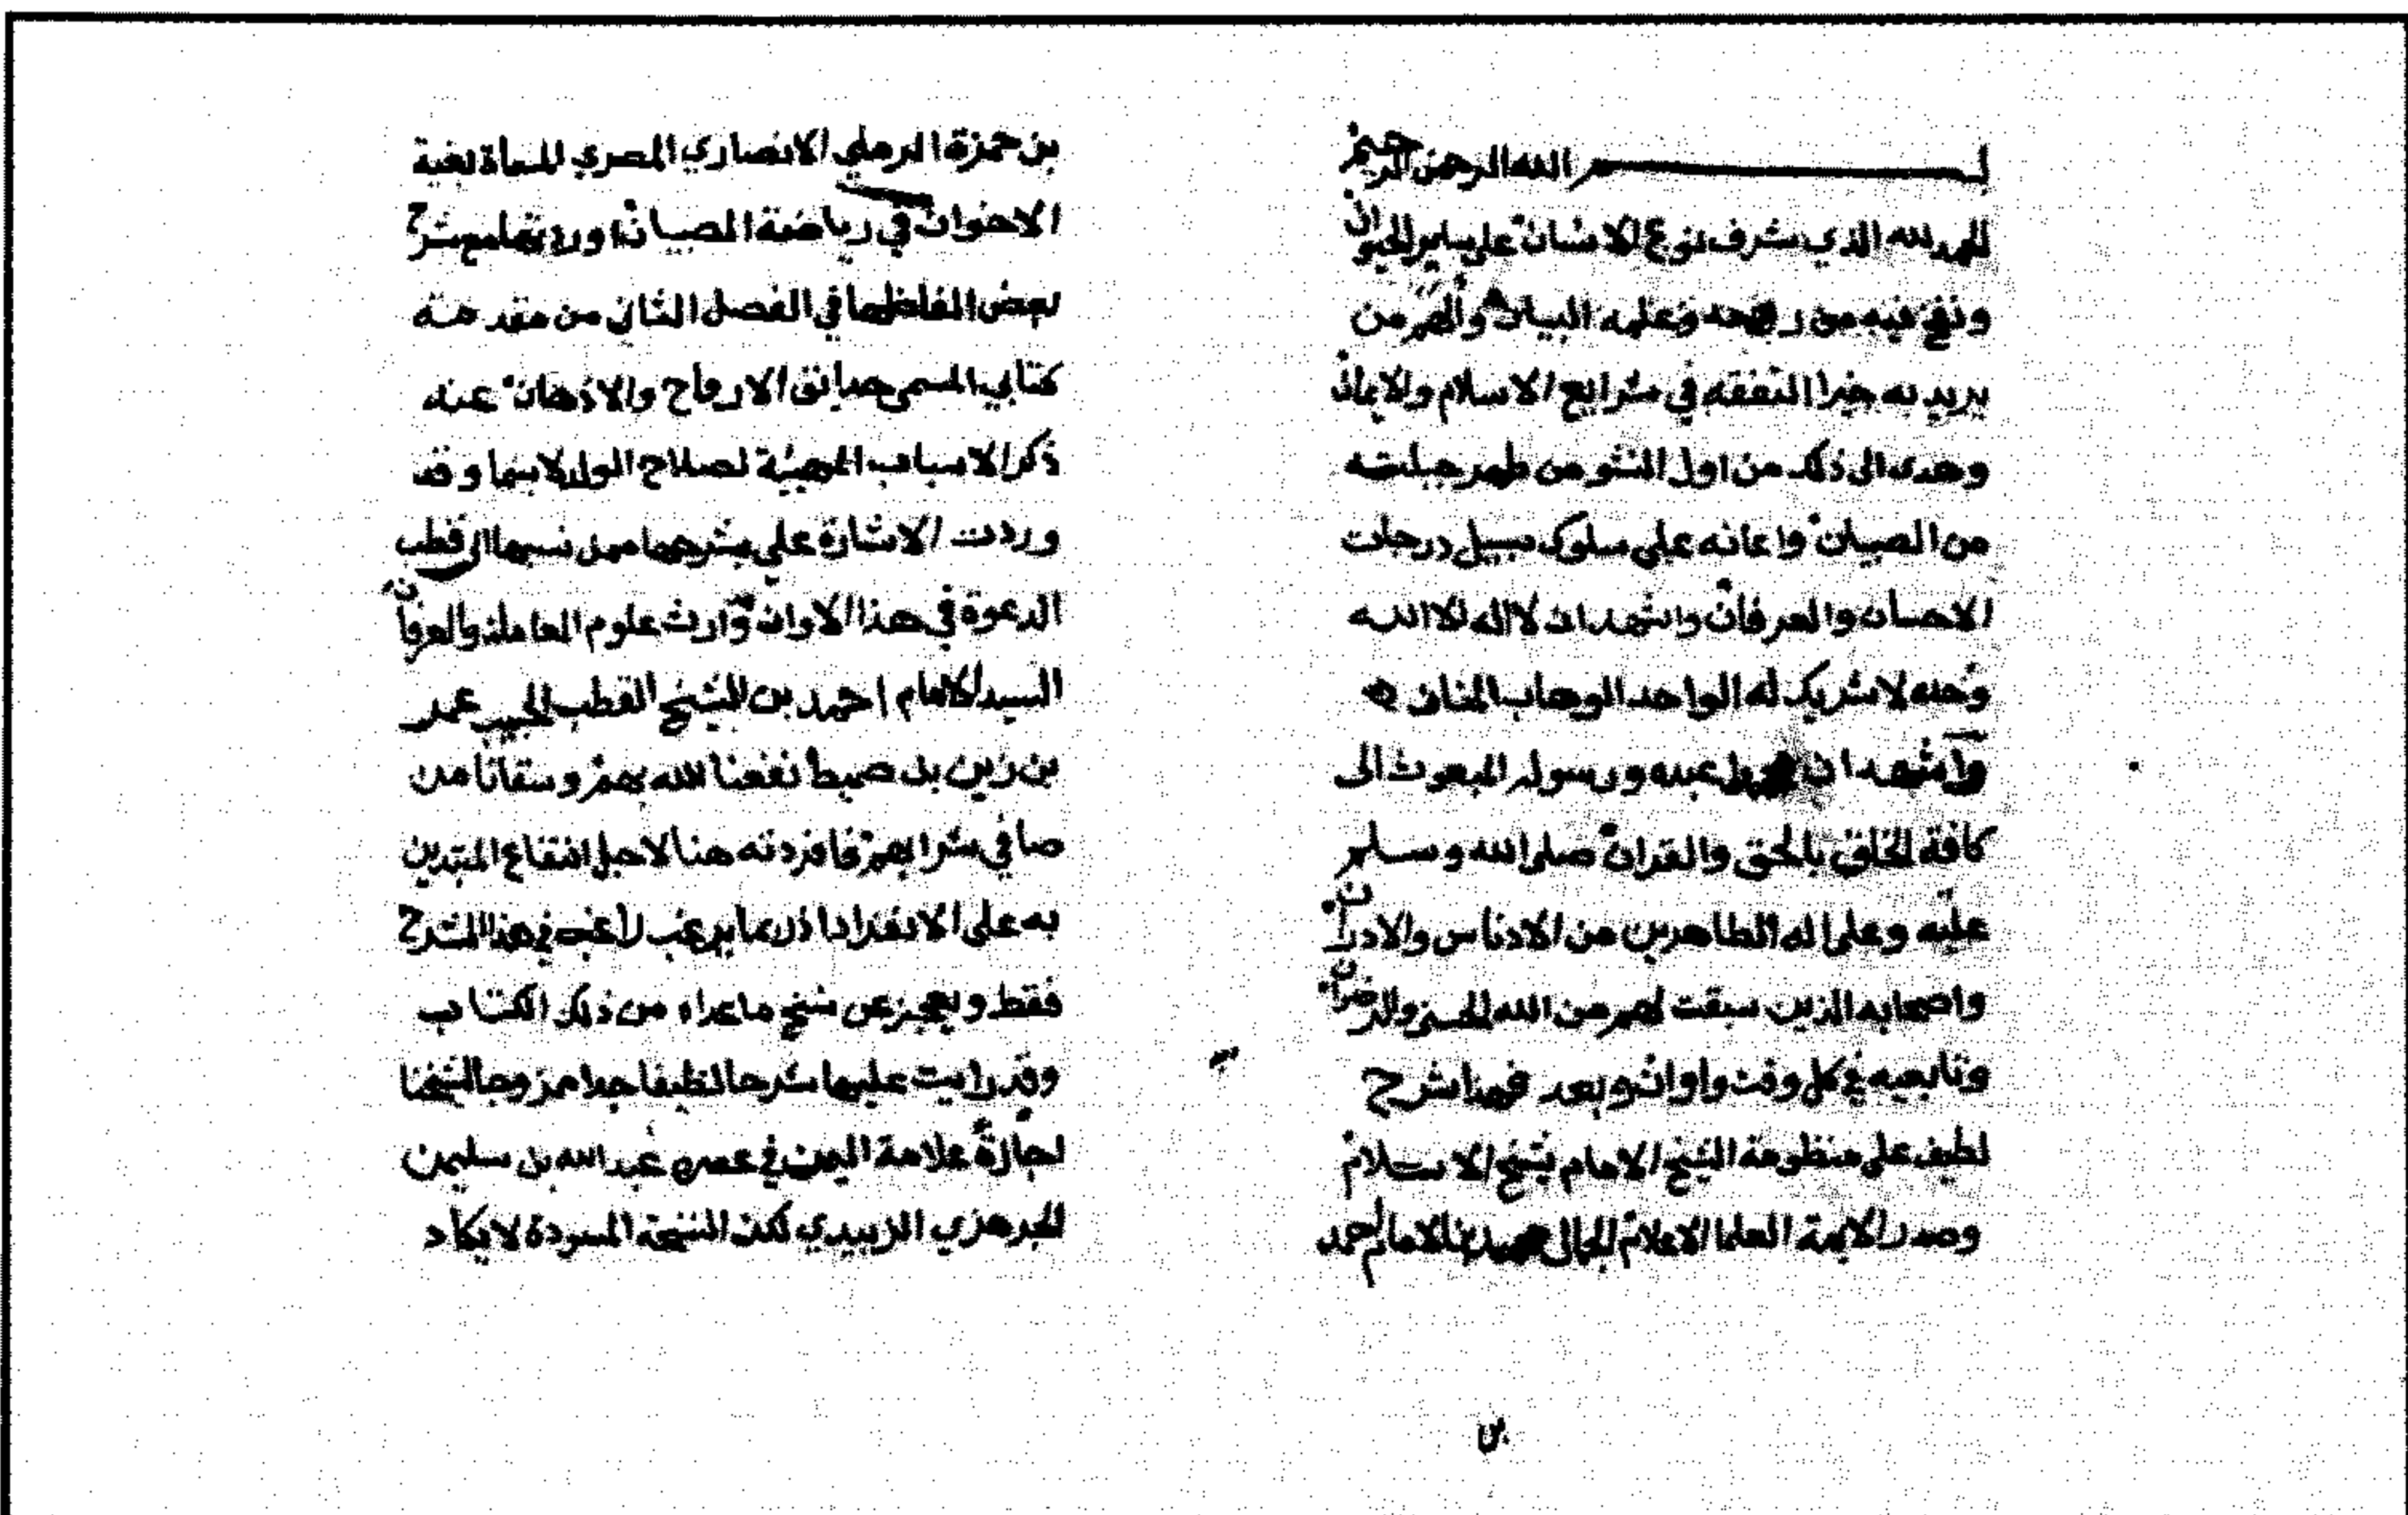 بسم الله الرحمن الرحيم
الحمد لله الذي شرف نوع الانسان على ساير الحيوان
ونفخ فيه من روحه وعلمه البيان والهم من
يريد به خيرا التفقه في شرايع الاسلام والايمان
وهدى الى ذلك من اول النشو من طهر جبلته
من الصبيان واعانه على سلوك سبيل درجات
الاحسان والعرفان واشهد ان لا اله الا الله
وحده لا شريك له الواحد الوهاب المنان
واشهد ان محمدا عبده ورسوله المبعوث الى
كافة الخلق بالحق والقران صلى الله وسلم
عليه وعلى اله الطاهرين من الادناس والادران
واصحابه الذين سبقت لهم من الله الحسنى والرضوان
وتابعيه في كل وقت واوان وبعد فهذا شرح
لطيف على منظومة الشيخ الامام شيخ الاسلام
وصدر الايمة العلما الاعلام الجمال محمد بن الامام احمد
بن
بن حمزة الرملي الانصاري المصري المسماة بغية
الاخوان في رياضة الصبيان اوردتها مع شرح
بعض الفاظها في الفصل الثاني من مقدمة
كتابي المسمى حدائق الارواح والاذهان عند
ذكر الاسباب لصلاح الولد لا سيما وقد
وردت الاشارة على بشرحها ممن نسبها الى قطب
الدعوة في هذا الاوان وارث علوم المعاملة والعرفان
السيد الامام احمد بن الشيخ القطب الحبيب عمر
بن زين بن سميط نفعنا الله بهم وسقانا من
صافي شرابهم فافردته هنا لاجل انتفاع المبتدين
به على الانفراد اذ ربما يرغب راغب في هذا الشرح
فقط ويعجز عن نسخ ما عداه من ذلك الكتاب
وقد رايت عليها شرحا لطيفا جدا ممزوجا لشيخنا
اجازة علامة اليمن في عصره عبد الله بن سليمن
الجرهزي الزبيدي لكن النسخة المسودة لا يكاد